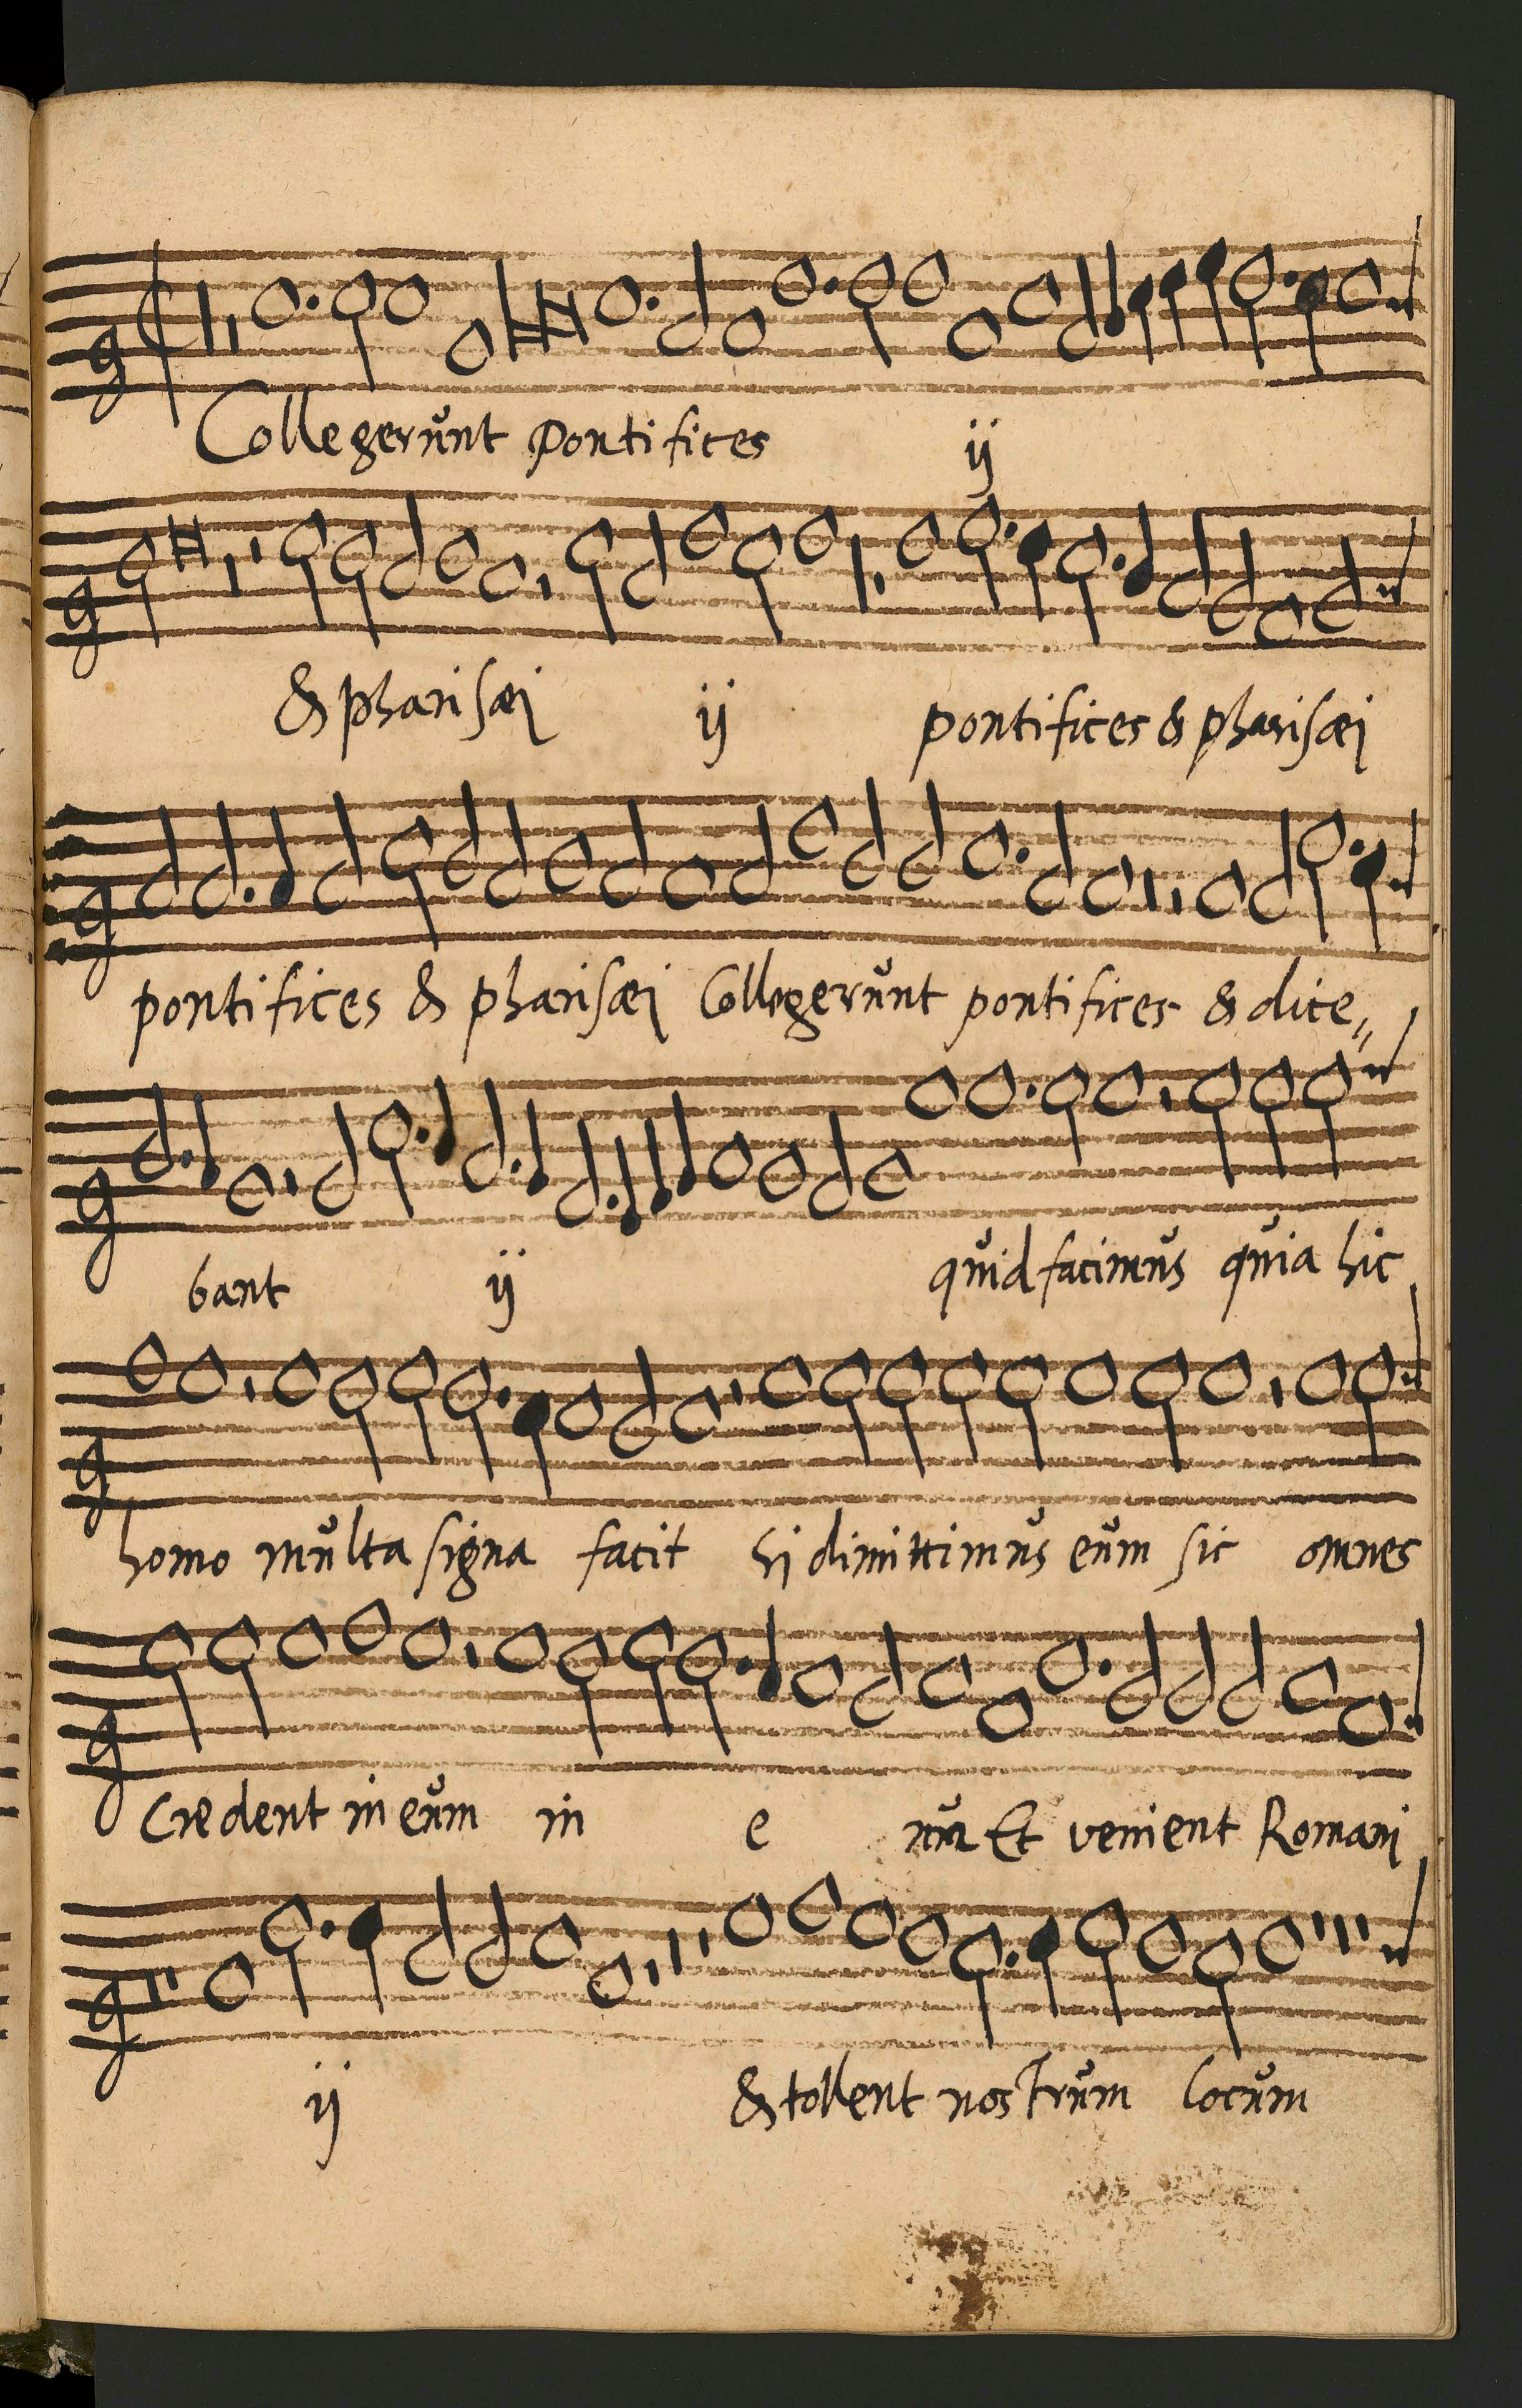 Collegerunt Pontifices ij
& pharisæi ij pontifices & pharisæi
pontifices & pharisæi Collegerunt pontifices & dice„
bant ij quid facimus quia hic
homo multa signa facit hi dimittimus eum sic omnes
Credent in eum in e um Et venient Romani
ij & tollent nostrum locum